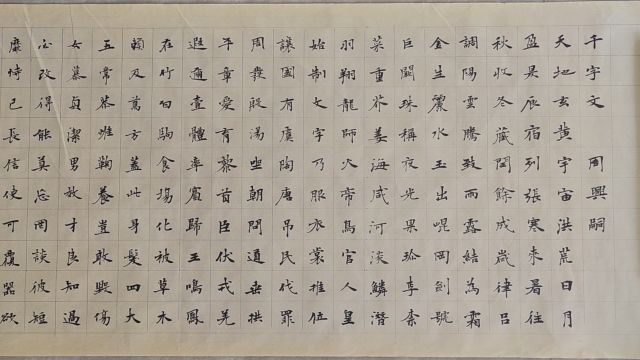 千字文 周興嗣
天地玄黃宇宙洪荒日月
盈昃辰宿列張寒來暑往
秋收冬藏閏餘成歲律呂
調陽雲騰致雨露結為霜
金生麗水玉出崐岡劍號
巨闕珠稱夜光果珍李柰
菜重芥姜海咸河淡鱗潛
羽翔龍師火帝鳥官人皇
始制文字乃服衣裳推位
讓國有虞陶唐吊民伐罪
周發殷湯坐朝問道垂拱
平章愛育黎首臣伏戎羌
遐邇壹體率賓歸王鳴鳳
在竹白駒食場化被草木
賴及萬方蓋此身髮四大
五常恭惟鞠養豈敢毀傷
女慕貞潔男效才良知過
必改得能莫忘罔談彼短
靡恃己長信使可覆器欲